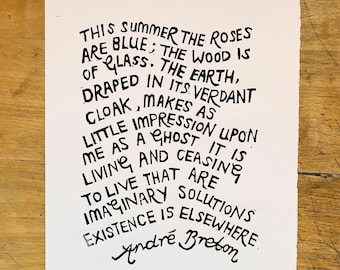 THIS SUMMER THE ROSES
ARE BLUE; THE WOOD IS
OF GLASS. THE EARTH,
DRAPED IN ITS VERDANT
CLOAK, MAKES AS
LITTLE IMPRESSION UPON
ME AS A GHOST IT IS
LIVING AND CEASING
TO LIVE THAT ARE
IMAGINARY SOLUTIONS
EXISTENCE IS ELSEWHERE
André Breton